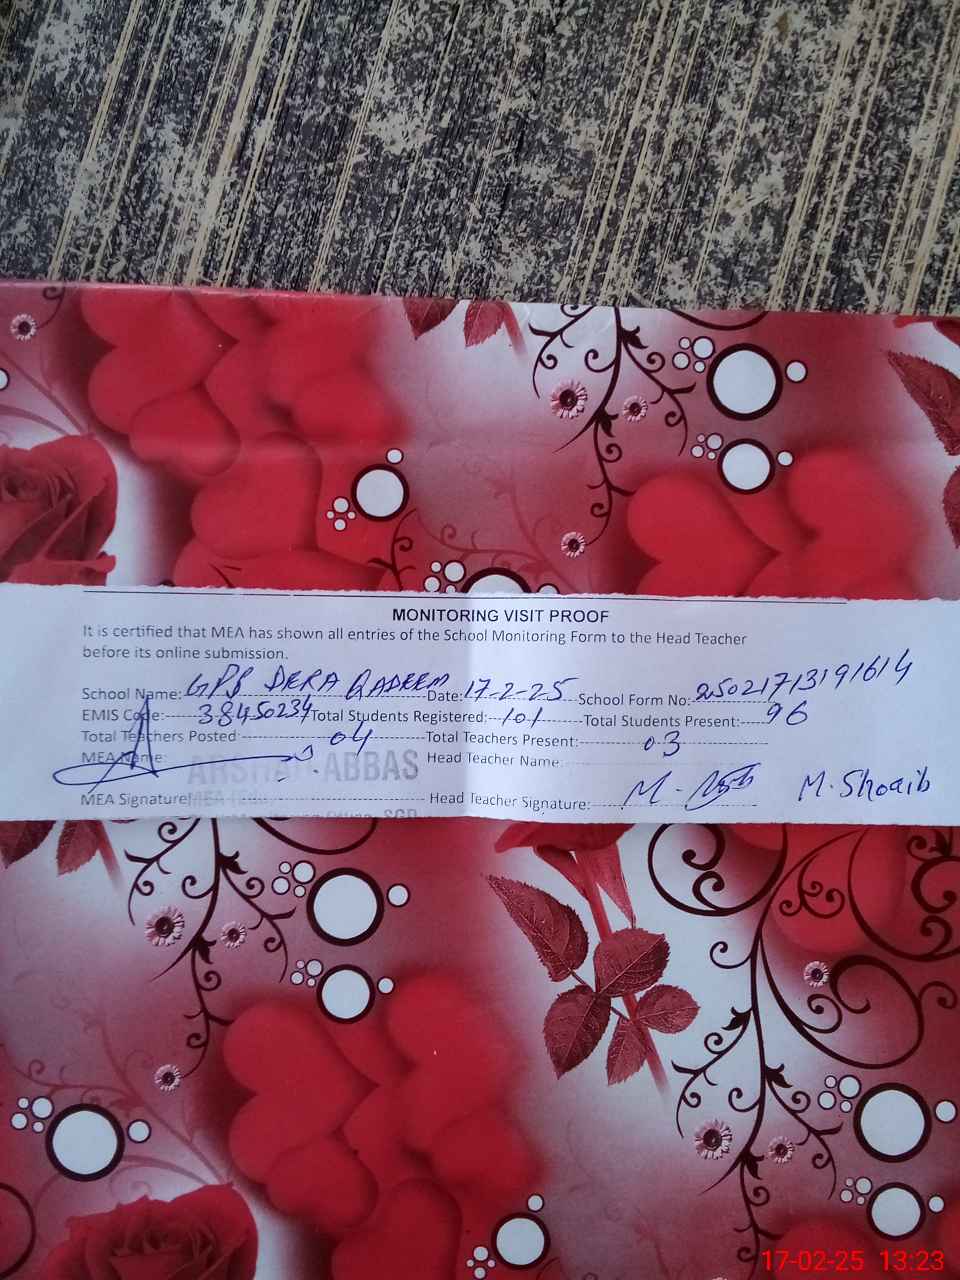 MONITORING VISIT PROOF
It is certified that MEA has shown all entries of the School Monitoring Form to the Head Teacher
before its online submission.
School Name: GPS DERA QADEEM Date: 17-2-25 School Form No: 25021713191614
EMIS Code: 38450234 Total Students Registered: 101 Total Students Present: 96
Total Teachers Posted: 04 Total Teachers Present: 03
MEA Name: ARSHAD ABBAS Head Teacher Name:
MEA Signature: Head Teacher Signature: M. M. Shoaib
17-02-25 13:23